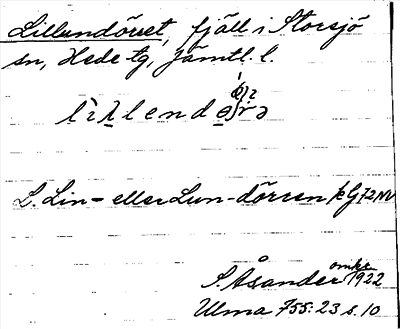 Lillundörret, fjäll i Storsjö
sn, Hede tg, Jämtl. l.
L. Lin- eller Lun-dörren kG 72 NV
S. Åsander omkr 1922
Ulma 755:23 s. 10